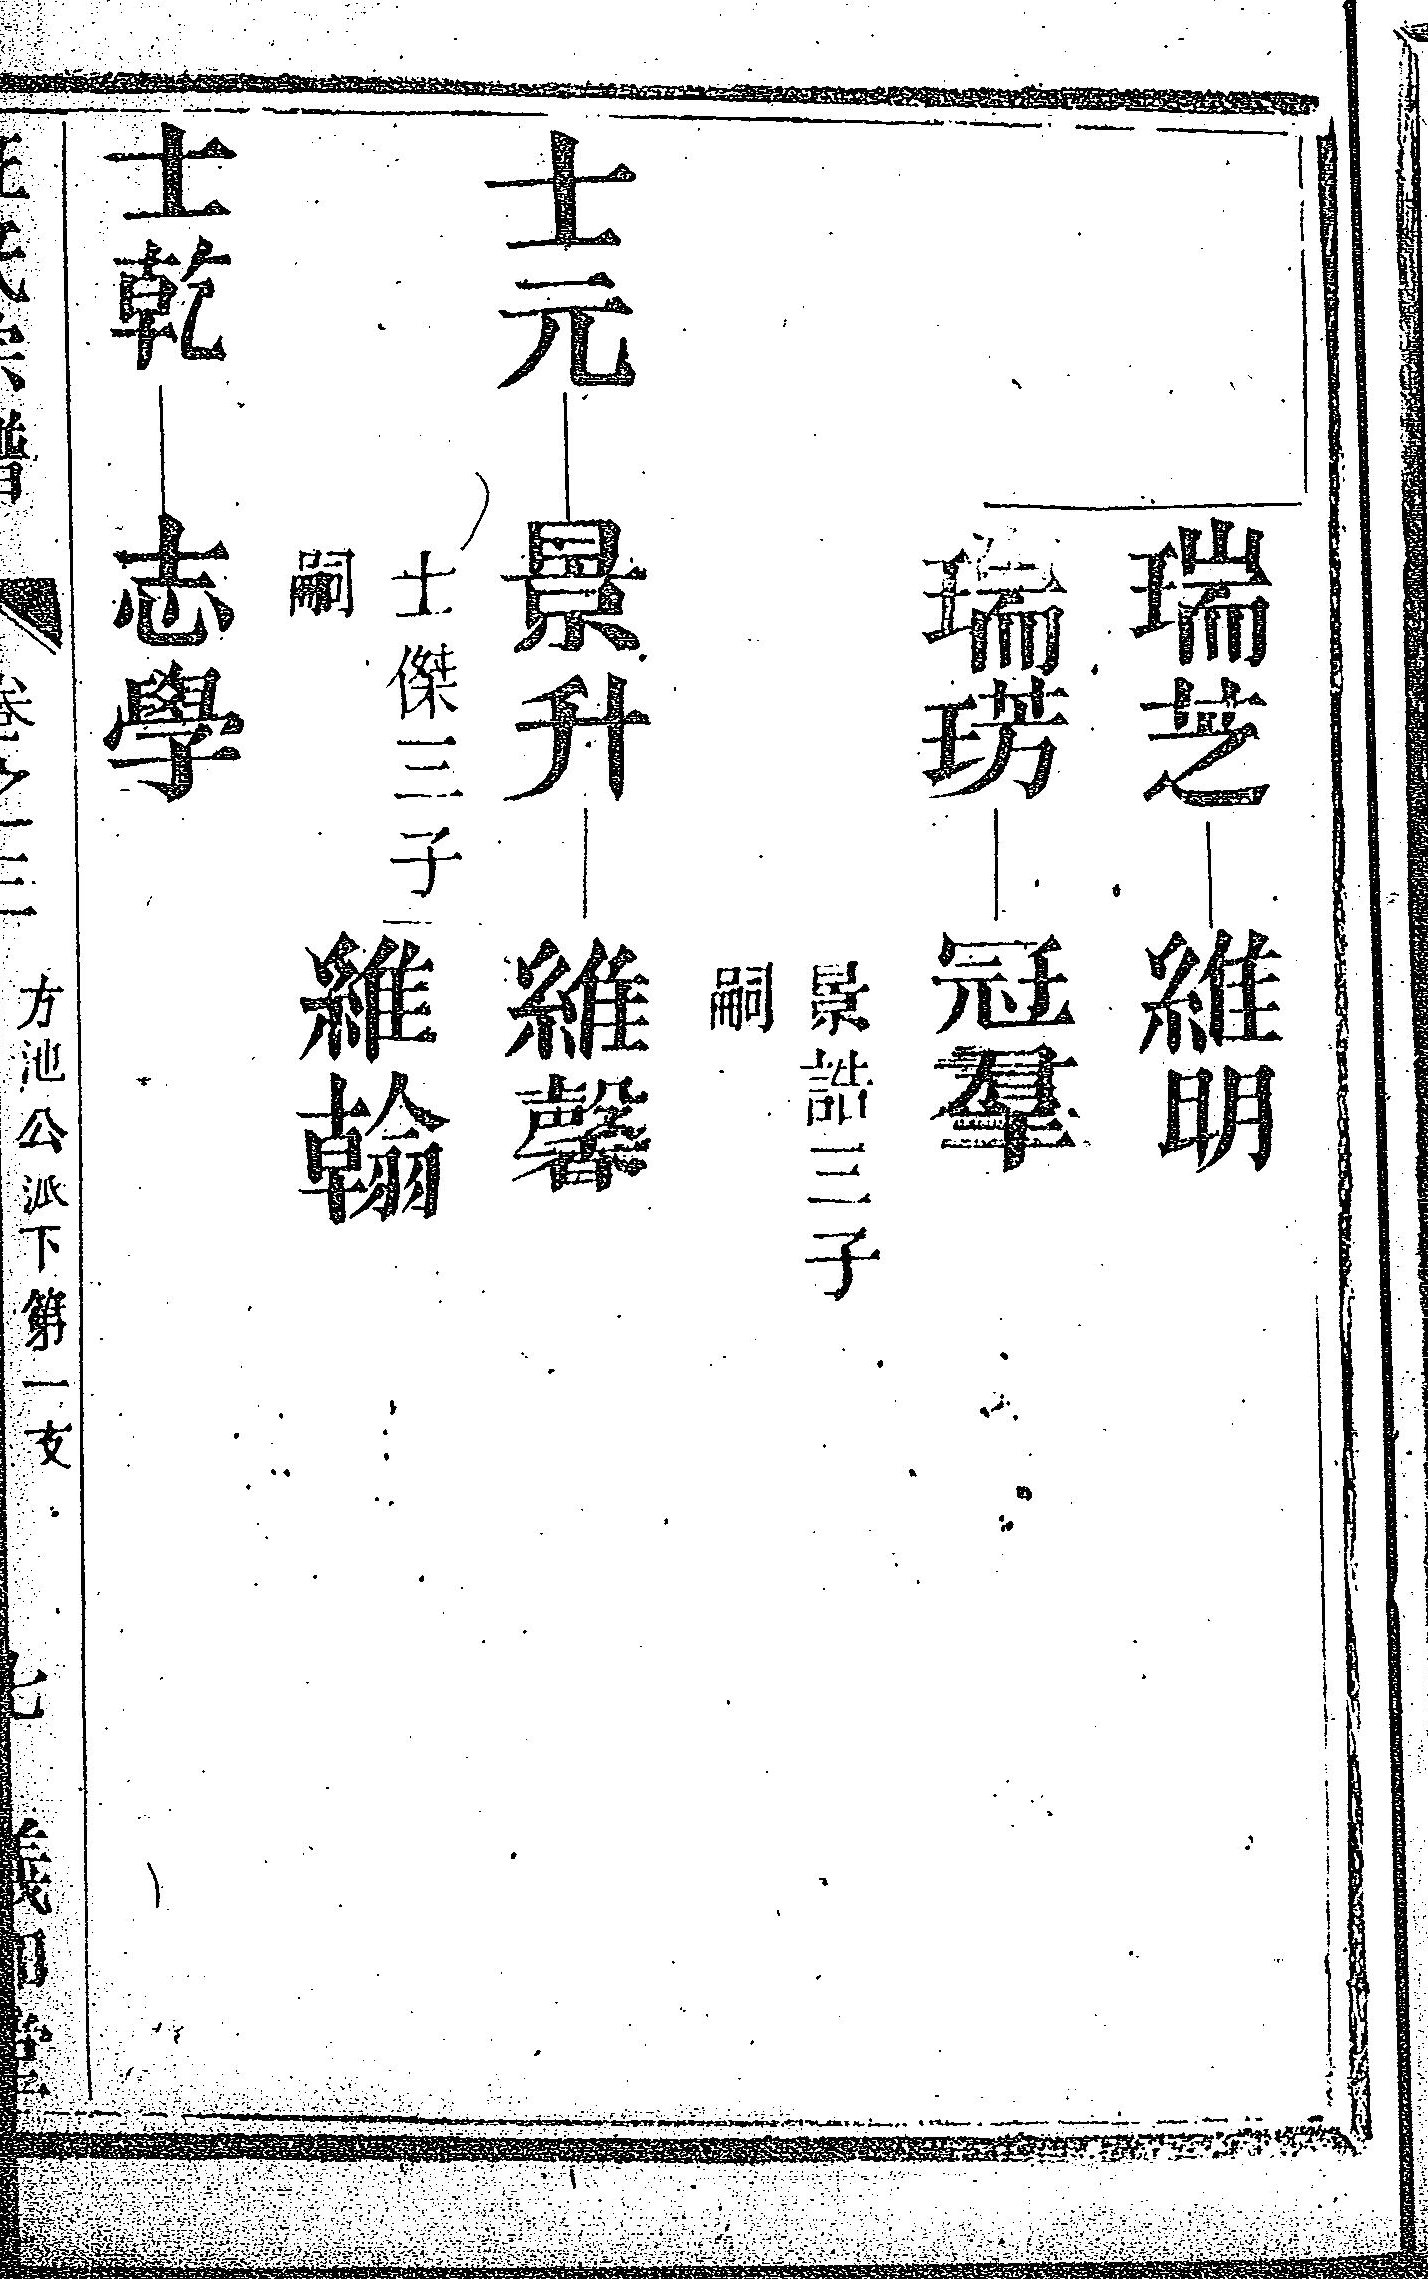 瑞芝
維明
瑞玏
冠羣
景誥三子
嗣
士元
景升
維馨
士傑三子
嗣
維翰
士乾
志學
卷之三
方池公派下第一支
七